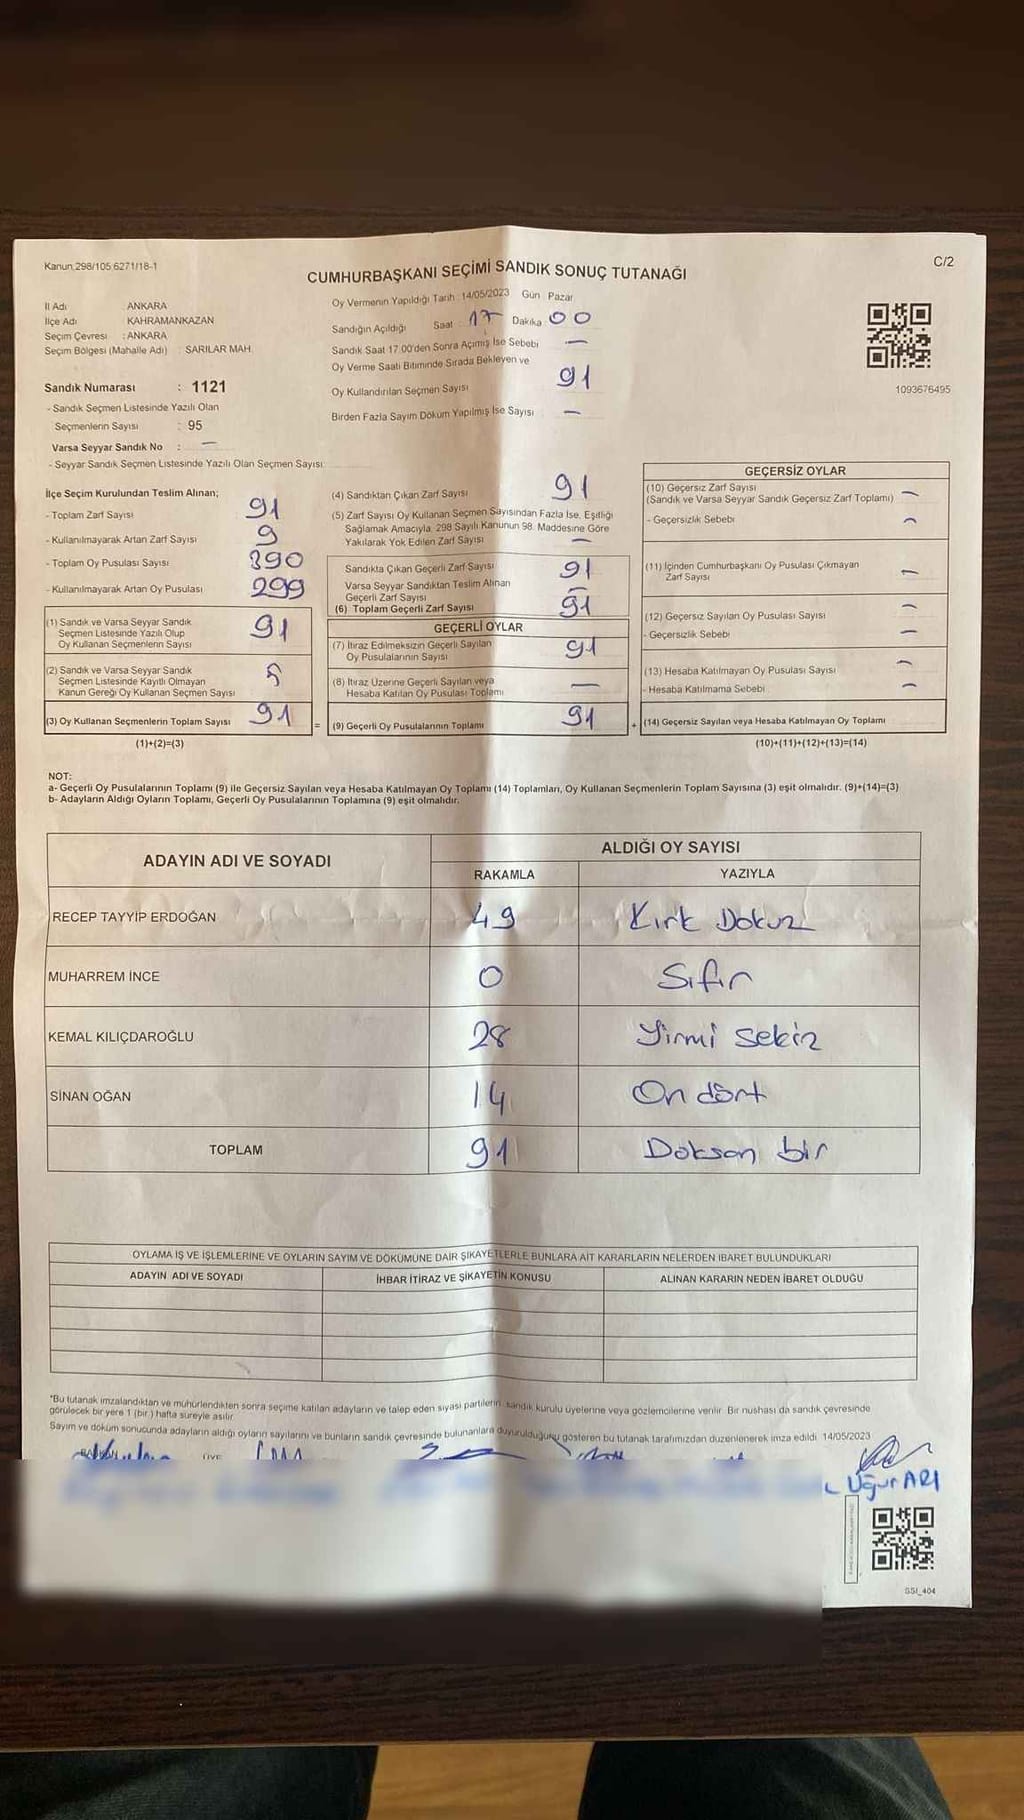 Kanun 298/105 6271/18-1
C/2
CUMHURBAŞKANI SEÇİMİ SANDIK SONUÇ TUTANAĞI
İl Adı ANKARA
İlçe Adı KAHRAMANKAZAN
Seçim Çevresi : ANKARA
Seçim Bölgesi (Mahalle Adı) : SARILAR MAH.
Sandık Numarası : 1121
- Sandık Seçmen Listesinde Yazılı Olan
Seçmenlerin Sayısı : 95
Varsa Seyyar Sandık No : —
- Seyyar Sandık Seçmen Listesinde Yazılı Olan Seçmen Sayısı:
Oy Vermenin Yapıldığı Tarih : 14/05/2023 Gün : Pazar
Sandığın Açıldığı Saat : 17 Dakika : 00
Sandık Saat 17.00'den Sonra Açımış İse Sebebi —
Oy Verme Saati Bitiminde Sırada Bekleyen ve
Oy Kullandırılan Seçmen Sayısı 91
Birden Fazla Sayım Döküm Yapılmış İse Sayısı —
1093676495
İlçe Seçim Kurulundan Teslim Alınan;
- Toplam Zarf Sayısı 91
- Kullanılmayarak Artan Zarf Sayısı 9
- Toplam Oy Pusulası Sayısı 390
- Kullanılmayarak Artan Oy Pusulası 299
(1) Sandık ve Varsa Seyyar Sandık
Seçmen Listesinde Yazılı Olup
Oy Kullanan Seçmenlerin Sayısı 91
(2) Sandık ve Varsa Seyyar Sandık
Seçmen Listesinde Kayıtlı Olmayan
Kanun Gereği Oy Kullanan Seçmen Sayısı
(3) Oy Kullanan Seçmenlerin Toplam Sayısı 91
(1)+(2)=(3)
(4) Sandıktan Çıkan Zarf Sayısı 91
(5) Zarf Sayısı Oy Kullanan Seçmen Sayısından Fazla İse, Eşitliği
Sağlamak Amacıyla, 298 Sayılı Kanunun 98. Maddesine Göre
Yakılarak Yok Edilen Zarf Sayısı —
Sandıkta Çıkan Geçerli Zarf Sayısı 91
Varsa Seyyar Sandıktan Teslim Alınan
Geçerli Zarf Sayısı —
(6) Toplam Geçerli Zarf Sayısı 91
GEÇERLİ OYLAR
(7) İtiraz Edilmeksizin Geçerli Sayılan
Oy Pusulalarının Sayısı 91
(8) İtiraz Üzerine Geçerli Sayılan veya
Hesaba Katılan Oy Pusulası Toplamı —
= (9) Geçerli Oy Pusulalarının Toplamı 91
GEÇERSİZ OYLAR
(10) Geçersiz Zarf Sayısı
(Sandık ve Varsa Seyyar Sandık Geçersiz Zarf Toplamı) —
- Geçersizlik Sebebi —
(11) İçinden Cumhurbaşkanı Oy Pusulası Çıkmayan
Zarf Sayısı —
(12) Geçersiz Sayılan Oy Pusulası Sayısı —
- Geçersizlik Sebebi —
(13) Hesaba Katılmayan Oy Pusulası Sayısı —
- Hesaba Katılmama Sebebi —
+ (14) Geçersiz Sayılan veya Hesaba Katılmayan Oy Toplamı
(10)+(11)+(12)+(13)=(14)
NOT:
a- Geçerli Oy Pusulalarının Toplamı (9) ile Geçersiz Sayılan veya Hesaba Katılmayan Oy Toplamı (14) Toplamları, Oy Kullanan Seçmenlerin Toplam Sayısına (3) eşit olmalıdır. (9)+(14)=(3)
b- Adayların Aldığı Oyların Toplamı, Geçerli Oy Pusulalarının Toplamına (9) eşit olmalıdır.
ADAYIN ADI VE SOYADI ALDIĞI OY SAYISI
RAKAMLA YAZIYLA
RECEP TAYYİP ERDOĞAN 49 Kırk Dokuz
MUHARREM İNCE 0 Sıfır
KEMAL KILIÇDAROĞLU 28 Yirmi sekiz
SİNAN OĞAN 14 On dört
TOPLAM 91 Doksan bir
OYLAMA İŞ VE İŞLEMLERİNE VE OYLARIN SAYIM VE DÖKÜMÜNE DAİR ŞİKAYETLERLE BUNLARA AİT KARARLARIN NELERDEN İBARET BULUNDUKLARI
ADAYIN ADI VE SOYADI İHBAR İTİRAZ VE ŞİKAYETİN KONUSU ALINAN KARARIN NEDEN İBARET OLDUĞU
*Bu tutanak imzalandıktan ve mühürlendikten sonra seçime katılan adayların ve talep eden siyasi partilerin sandık kurulu üyelerine veya gözlemcilerine verilir. Bir nüshası da sandık çevresinde
görülecek bir yere 1 (bir) hafta süreyle asılır.
Sayım ve döküm sonucunda adayların aldığı oyların sayılarını ve bunların sandık çevresinde bulunanlara duyurulduğunu gösteren bu tutanak tarafımızdan düzenlenerek imza edildi. 14/05/2023
BAŞKAN ÜYE
Uğur ARI
SSI_404